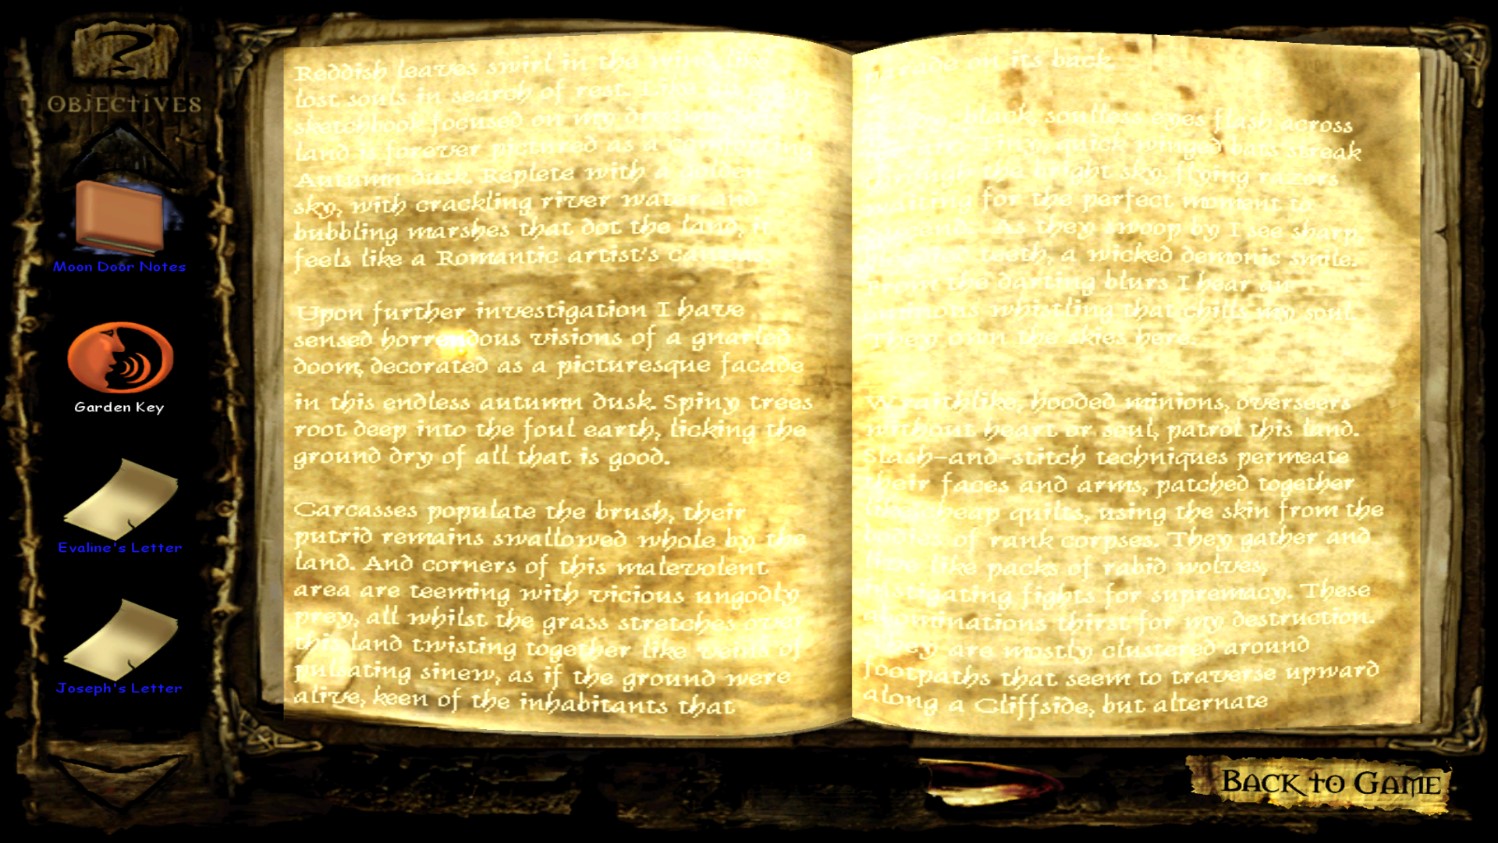 OBJECTIVES
Moon Door Notes
Garden Key
Evaline's Letter
Joseph's Letter
Reddish leaves swirl in the wind, like
lost souls in search of rest.
sketchbook focused on my
land is forever pictured as a
Autumn dusk. Replete with a
sky, with crackling river water and
bubbling marshes that dot the land, it
feels like a Romantic artist's canvas.
Upon further investigation I have
sensed horrendous visions of a gnarled
doom, decorated as a picturesque facade
in this endless autumn dusk. Spiny trees
root deep into the foul earth, licking the
ground dry of all that is good.
Carcasses populate the brush, their
putrid remains swallowed whole by the
land. And corners of this malevolent
area are teeming with vicious ungodly
prey, all whilst the grass stretches over
this land twisting together like veins of
pulsating sinew, as if the ground were
alive, keen of the inhabitants that
on its back.
black soulless eyes flash across
quick winged bats streak
the bright sky, flying razors
waiting for the perfect moment to
As they swoop by I see sharp
teeth, a wicked demonic smile.
the darting blurs I hear an
whistling that chills my soul.
They own the skies here.
Wraithlike, hooded minions, overseers
without heart or soul, patrol this land.
Slash-and-stitch techniques permeate
their faces and arms, patched together
like cheap quilts, using the skin from the
bodies of rank corpses. They gather and
like packs of rabid wolves,
instigating fights for supremacy. These
abominations thirst for my destruction.
They are mostly clustered around
footpaths that seem to traverse upward
along a Cliffside, but alternate
BACK TO GAME